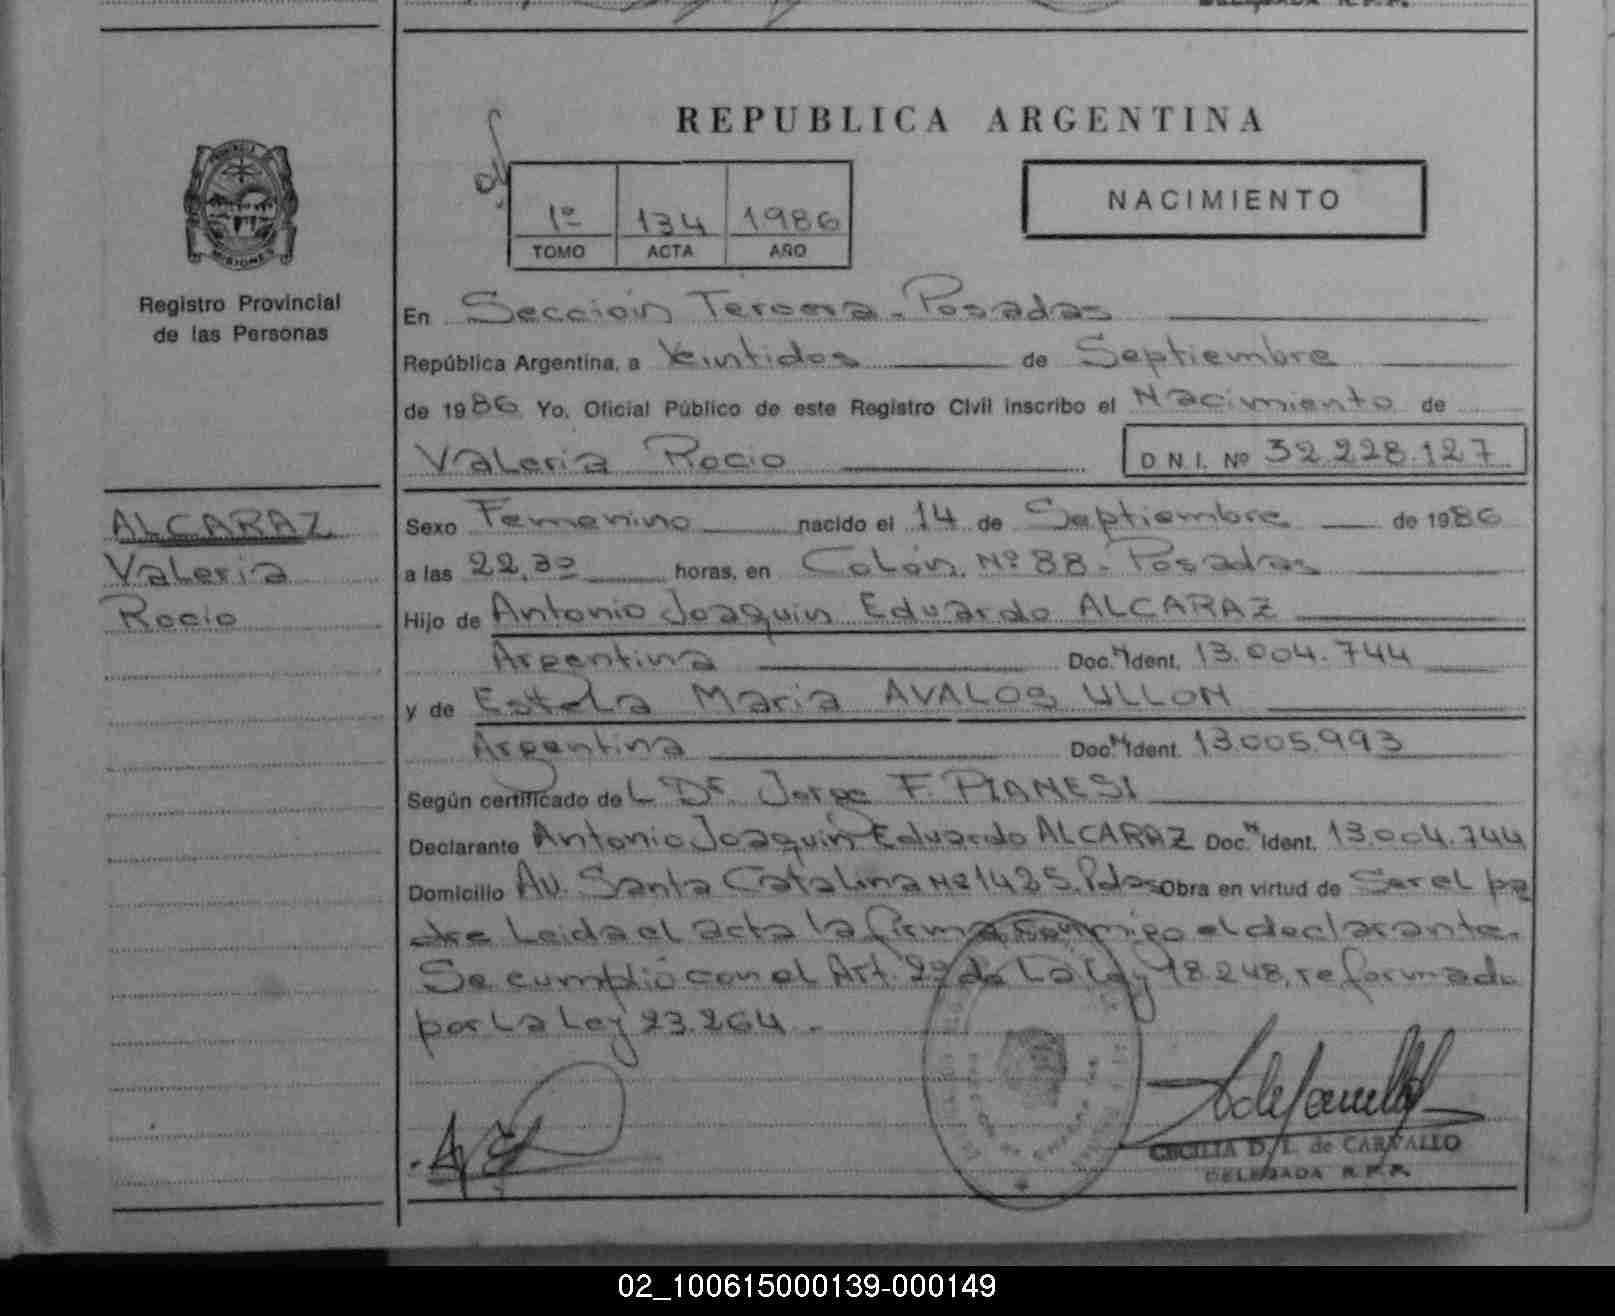 REPUBLICA ARGENTINA
PROVINCIA
MISIONES
Registro Provincial
de las Personas
1º 134 1986
TOMO ACTA AÑO
NACIMIENTO
En Sección Tercera - Posadas
República Argentina, a Veintidos de Septiembre
de 1986 Yo, Oficial Público de este Registro Civil inscribo el Nacimiento de
Valeria Rocio D N I. Nº 32.228.127
ALCARAZ
Valeria
Rocio
Sexo Femenino nacido el 14 de Septiembre de 1986
a las 22,30 horas, en Colón Nº 88 - Posadas
Hijo de Antonio Joaquin Eduardo ALCARAZ
Argentina Doc. Ident. 13.004.744
y de Estela Maria AVALOS ULLON
Argentina Doc. Ident. 13.005.993
Según certificado del Dr. Jorge F. PIANESI
Declarante Antonio Joaquin Eduardo ALCARAZ Doc. Ident. 13.004.744
Domicilio Av. Santa Catalina Nº 1425. Pdas Obra en virtud de Ser el pa
dre Leida el acta la firma conmigo el declarante.
Se cumplió con el Art. 2º de La Ley 18.248, reformado
por La Ley 23.264.
CECILIA D. L. de CARVALLO
DELEGADA R.P.P.
02_100615000139-000149